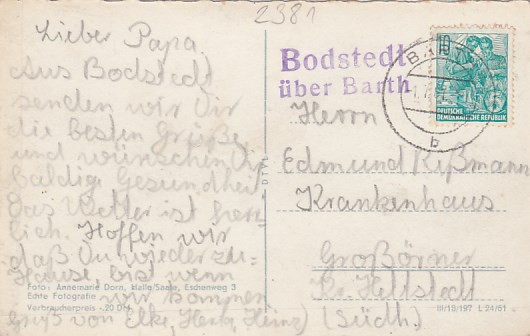 2381
Lieber Papa.
Aus Bodstedt
senden wir Dir
die besten Grüße
und wünschen Dir
baldige Gesundheit
das Wetter ist herr-
lich. Hoffen wir
daß Du wieder zu-
Hause bist wenn
wir kommen
Gruß von Elke, Herta, Heinz
Foto: Annemarie Dorn, Halle/Saale, Eschenweg 3
Echte Fotografie
Verbraucherpreis -.20 DM
Bodstedt
über Barth
BA
b
10
5
DEUTSCHE
DEMOKRATISCHE REPUBLIK
Herrn
Edmund Rißmann
Krankenhaus
Großörner
Kr. Hettstedt
(Südh.)
III/18/197 L 24/61